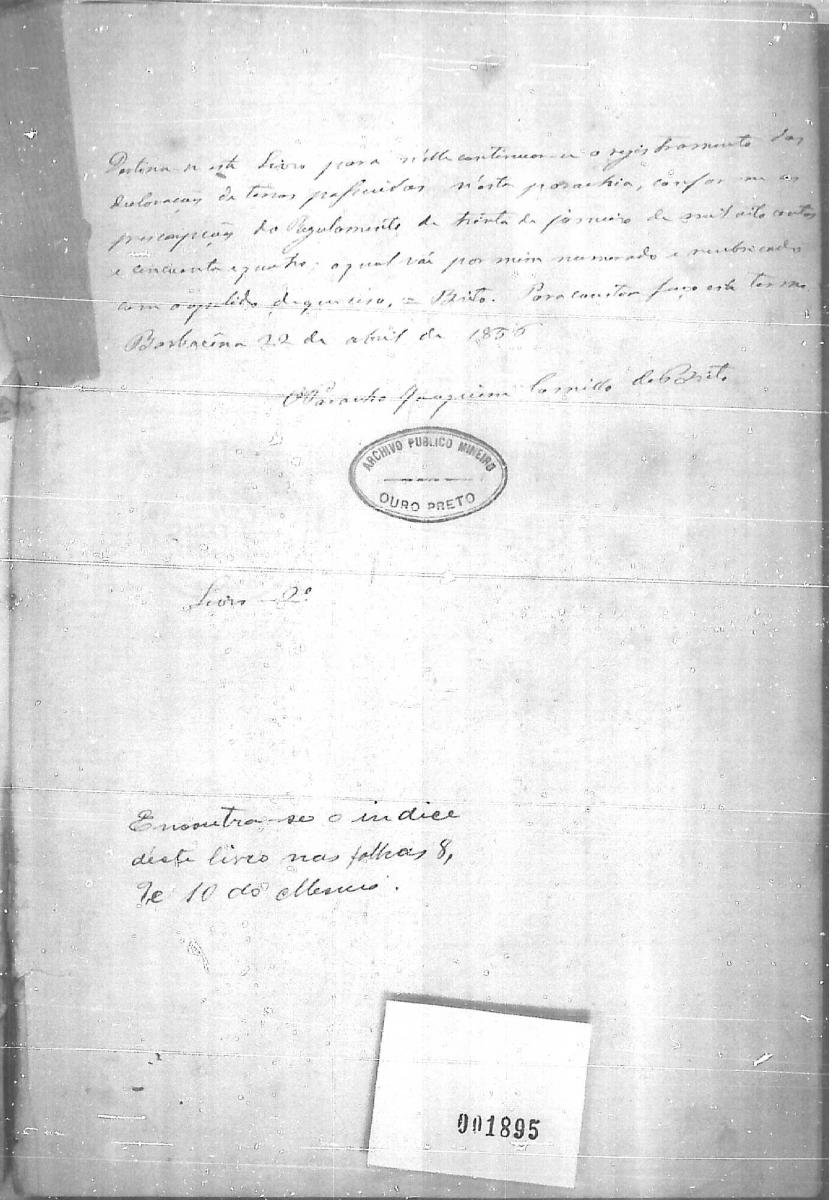 Destina-se este Livro para n'elle continuar-se o registramento das
declaraçoẽs de terras possuidas n'esta parochia, conforme as
prescripçoẽs do Regulamento de trinta de janeiro de mil oito centos
e cincoenta e quatro; o qual vai por mim numerado e rubricado
com o apelido, de que uso, = Brito. Para constar faço este termo.
Barbacena 22 de abril de 1856
O Parocho Joaquim Camillo de Brito
ARCHIVO PUBLICO MINEIRO
OURO PRETO
Livro 2º
Encontra-se o indice
deste livro nas folhas 8,
9 e 10 do Mesmo.
001895